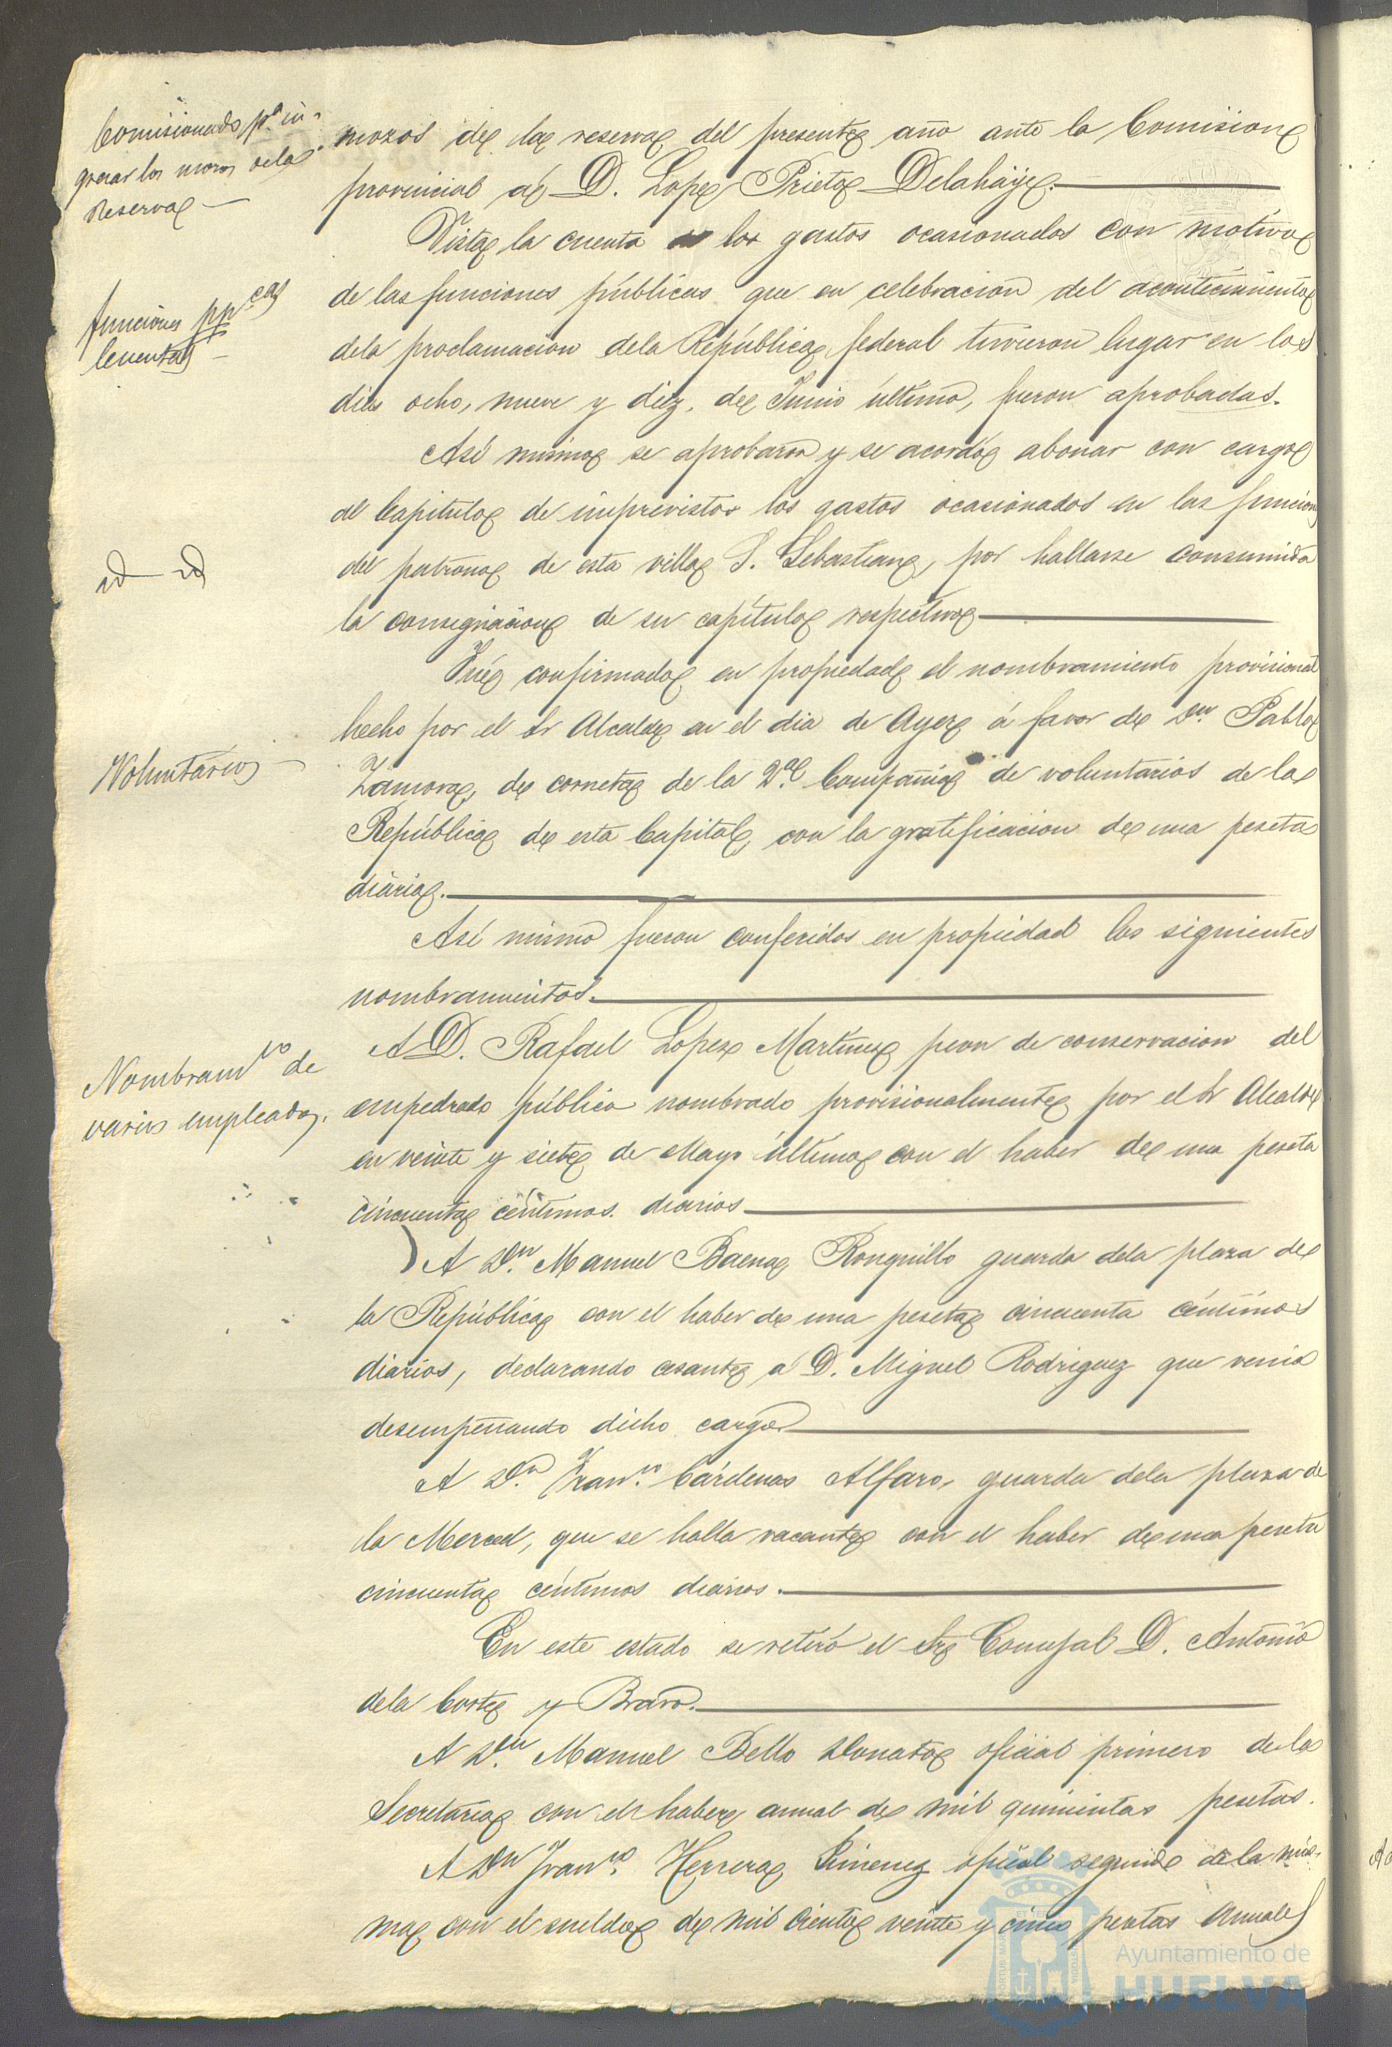 Comisionado p.ª in-
gresar los mozos de la
reserva
mozos de la reserva del presente año ante la Comision
provincial á D. Lope Prieto Delahaye.
Vista la cuenta de los gastos ocasionados con motivo
funciones pp.cas
Cuentas
de las funciones públicas que en celebracion del acontecimiento
dela proclamacion dela República federal tuvieron lugar en los
dias ocho, nueve y diez, de Junio último, fueron aprobadas.
Asi mismo se aprobaron y se acordó abonar con cargo
al Capitulo de imprevistos los gastos ocasionados en las funciones
id id
del patrono de esta villa S. Sebastian, por hallarse consumida
la consignacion de su capítulo respectivo
Fué confirmado en propiedad el nombramiento provisional
hecho por el Sr Alcalde en el dia de Ayer á favor de Dn. Pablo
Voluntarios
Zamora, de corneta de la 2.ª Compañia de voluntarios de la
República de esta Capital, con la gratificacion de una peseta
diaria.
Asi mismo fueron conferidos en propiedad los siguientes
nombramientos.
Nombram.to de
varios empleados.
A D. Rafael Lopez Martinez peon de conservacion del
empedrado público nombrado provisionalmente por el Sr Alcalde
en veinte y siete de Mayo último con el haber de una peseta
cincuenta céntimos diarios
A Dn. Manuel Baena Ronquillo guarda dela plaza de
la República con el haber de una peseta cincuenta céntimos
diarios, declarando cesante á D. Miguel Rodriguez que venia
desempeñando dicho cargo
A Dn. Fran.co Cárdenas Alfaro, guarda dela plaza de
la Merced, que se halla vacante con el haber de una peseta
cincuenta céntimos diarios.
En este estado se retiró el Sr Concejal D. Antonio
dela Corte y Bravo.
A Dn. Manuel Bello Donato oficial primero de la
Secretaria con el haber anual de mil quinientas pesetas.
A Dn Fran.co Herrera Gimenez oficial segundo de la mis-
ma con el sueldo de mil ciento veinte y cinco pesetas anuales
Ayuntamiento de
HUELVA